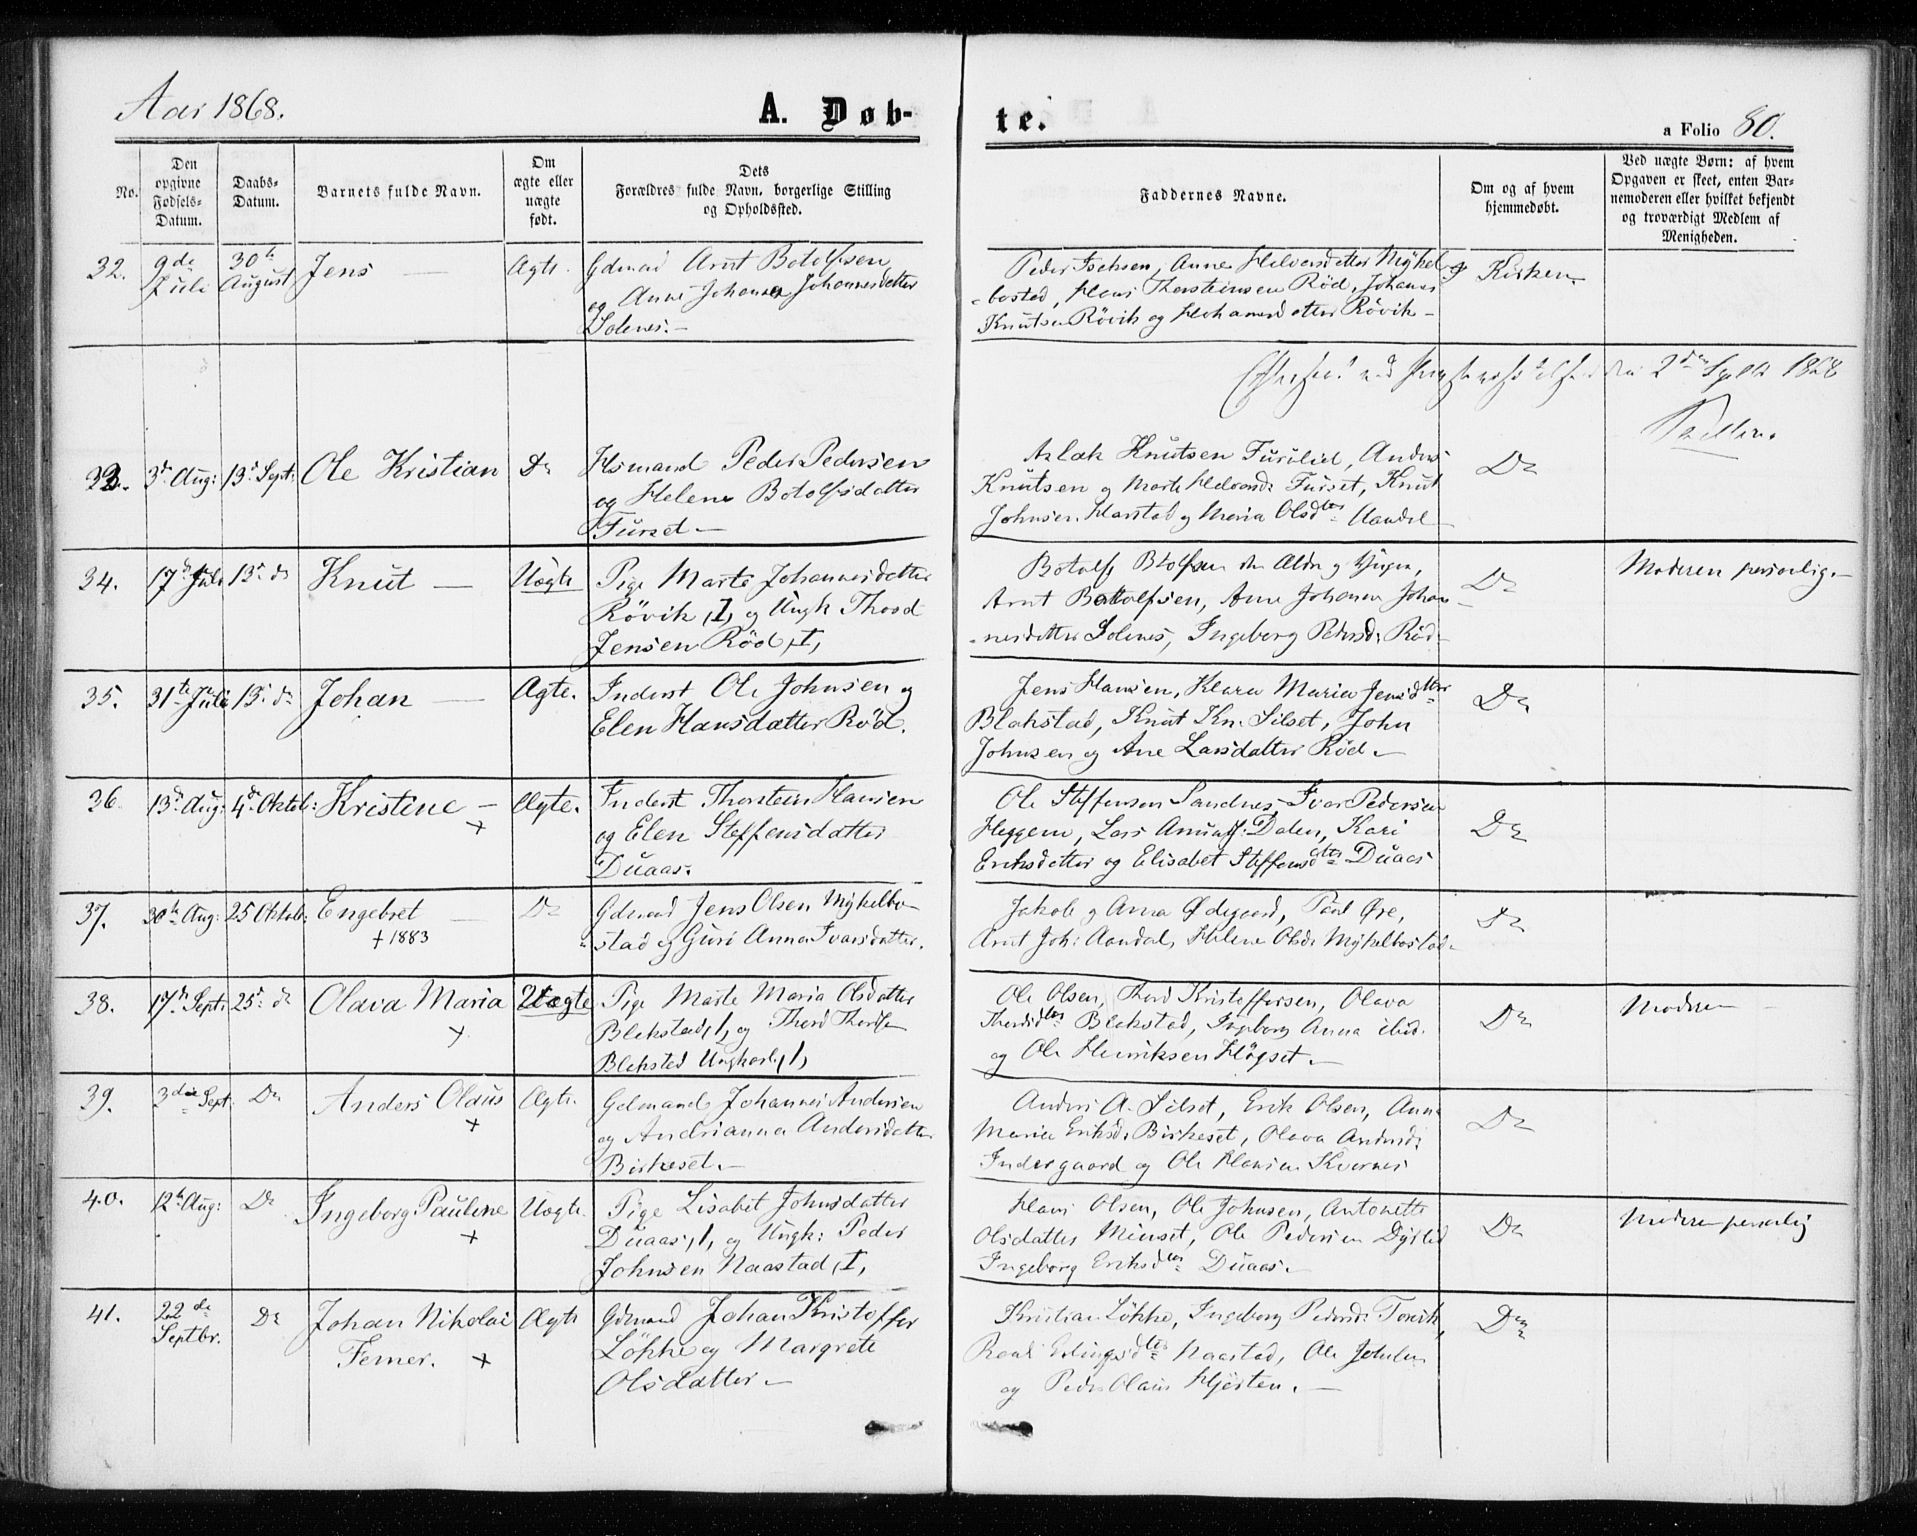 Aar 1868.
A. Døb-
te.
a Folio 80.
No.
Den
opgivne
Fødsels-
Datum.
Daabs-
Datum.
Barnets fulde Navn.
Om
ægte eller
uægte
født.
Dets
Forældres fulde Navn, borgerlige Stilling
og Opholdssted.
Faddernes Navne.
Om og af hvem
hjemmedøbt.
Ved uægte Børn: af hvem
Opgaven er skeet, enten Bar-
nemoderen eller hvilket bekjendt
og troværdigt Medlem af
Menigheden.
32.
9de
Juli
30te
August
Jens —
Ægte.
Gdmand Arnt Botolfsen
og Anne Johanna Johannesdatter
Solenes. —
Peder Anne Halvorsdatter Mykel
-bostad, Hans Thorsteinsen Röd, Johannes
Knutsen Rövik og Rövik —
Kirken.
den 2den Septbr 1868
33.
3de Aug:
13de Sept:
Ole Kristian
Do
Hsmand Peder Pedersen
og Helene Botolfsdatter
Furset —
Aslak Knutsen Furelied, Anders
Knutsen og Marte Halvorsd: Furset, Knut
Johnsen Harstad og Maria Olsdter Aandal
Do
34.
17de Juli
13de do
Knut —
Uægte
Pige Marte Johannesdatter
Rövik, I, og Ungk Thord
Jensen Röd, I,
Botolf Btolfsen den Ældre og Yngre,
Arnt Botolfsen, Anne Johanna Johan
-nesdatter Solenes, Ingeborg Pedersd: Röd —
Do
Moderen personlig. —
35.
31te Juli
13de do
Johan —
Ægte.
Inderst Ole Johnsen og
Elen Hansdatter Röd.
Jens Hansen, Klara Maria Jensdtter
Blakstad, Knut Kn. Silset, John
Johnsen og Ane Larsdatter Röd. —
Do
36.
13de Aug:
4de Oktob:
Kristine —
+
Ægte.
Inderst Thorstein Hansen
og Elen Steffensdatter
Duaas.
Ole Steffensen Sandnes, Ivar Pedersen
Heggem, Lars Amunds. Dalen, Kari
Eriksdatter og Elisabet Steffensdatter Duaas
Do
37.
30te Aug:
25 Oktob:
Engebret —
+ 1883
Do
Gdmand Jens Olsen Mykelbo-
-stad og Guri Anna Ivarsdatter.
Jakob og Anna Ødegaard, Paul Øre,
Arnt Joh: Aandal, Helene Olsd: Mykelbostad
Do
38.
17de Sept:
25de do
Olava Maria
+
Uægte
Pige Marte Maria Olsdatter
Blekstad, I, og Thord Thordsen
Blekstad Ungkarl, I,
Ole Olsen, Thord Kristoffersen, Olava
Thordsdter Blekstad, Ingeborg Anna ibid.
og Ole Henriksen Högset. —
Do
Moderen —
39.
3die Sept:
Do
Anders Olaus
+
Ægte.
Gdmand Johannes Andersen
og Andrianna Andersdatter
Birkeset. —
Anders A. Silset, Erik Olsen, Anna
Maria Eriksd: Birkeset, Olava Andersd:
Indergaard og Ole Hansen Kvernes
Do
40.
12te Aug:
Do
Ingeborg Pauline
+
Uægte.
Pige Lisabet Johnsdatter
Duaas, I, og Ungk: Peder
Johnsen Naastad, I,
Hans Olsen, Ole Johnsen, Antonette
Olsdatter Meisset, Ole Pedersen Dyrlid
Ingeborg Eriksdter Duaas. —
Do
Moderen personlig
41.
22de
Septbr.
Do
Johan Nikolai
Ferner. +
Ægte
Gdmand Johan Kristoffer
Lökke og Margrete
Olsdatter —
Kristian Lökke, Ingeborg Pedersd: Torvik,
Erlingsdter Naastad, Ole Johnsen
og Peder Olaus Hjorten. —
Do